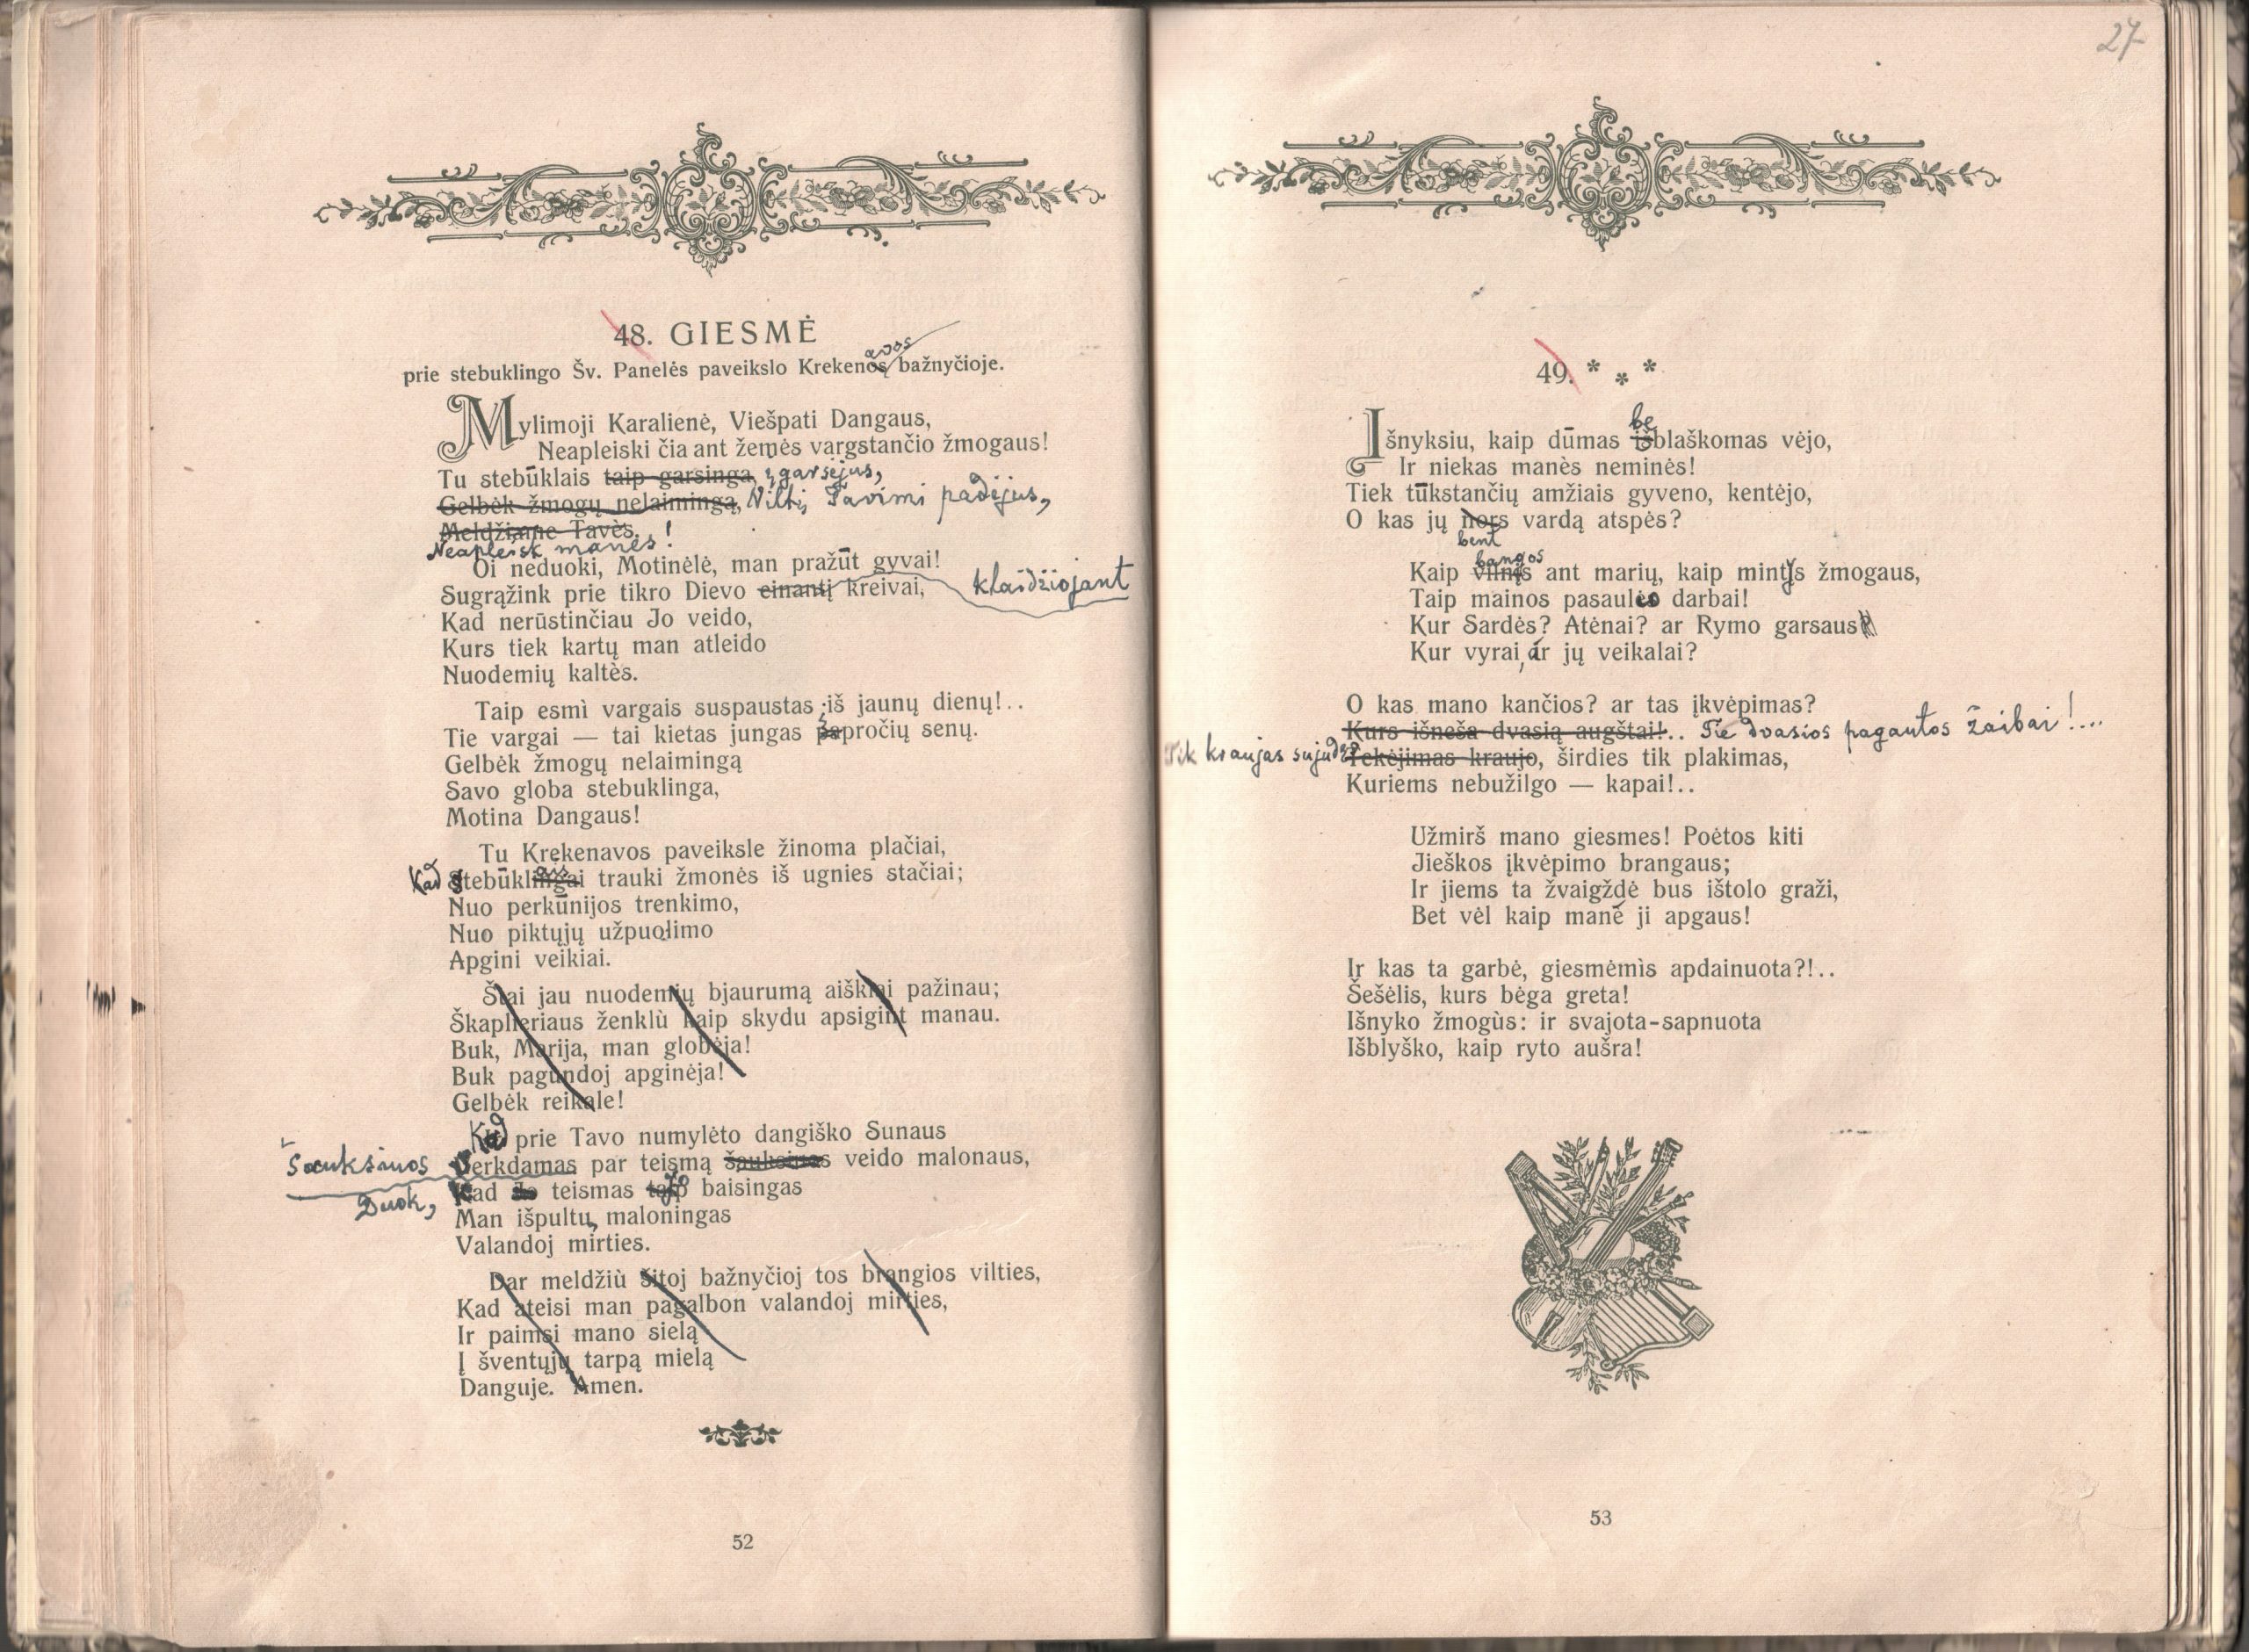 27
48. GIESMĖ
avos
prie stebuklingo Šv. Panelės paveikslo Krekenos bažnyčioje.
Mylimoji Karalienė, Viešpati Dangaus,
Neapleiski čia ant žemės vargstančio žmogaus!
Tu stebūklais taip garsinga, įgarsėjus,
Gelbėk žmogų nelaimingą, Viltį Tavimi padėjus,
Meldžiame Tavęs. !
Neapleisk manęs
Oi neduoki, Motinėlė, man pražūt gyvai!
Sugrąžink prie tikro Dievo einantį kreivai, klaidžiojant
Kad nerūstinčiau Jo veido,
Kurs tiek kartų man atleido
Nuodemių kaltės.
Taip esmì vargais suspaustas iš jaunų dienų!..
Tie vargai — tai kietas jungas papročių senų.
Gelbėk žmogų nelaimingą
Savo globa stebuklinga,
Motina Dangaus!
Tu Krekenavos paveiksle žinoma plačiai,
Kad Stebūklingai trauki žmonės iš ugnies stačiai;
Nuo perkūnijos trenkimo,
Nuo piktųjų užpuolimo
Apgini veikiai.
Štai jau nuodemių bjaurumą aiškiai pažinau;
Škaplieriaus ženklù kaip skydu apsigint manau.
Buk, Marija, man globėja!
Buk pagundoj apginėja!
Gelbėk reikale!
Kad prie Tavo numylėto dangiško Sunaus
Šauksmos Verkdamas par teismą šauksmos veido malonaus,
Duok, Kad Jo teismas taip Jo baisingas
Man išpultų maloningas
Valandoj mirties.
Dar meldžiù šitoj bažnyčioj tos brangios vilties,
Kad ateisi man pagalbon valandoj mirties,
Ir paimsi mano sielą
Į šventųjų tarpą mielą
Danguje. Amen.
52
49. * * *
be
Išnyksiu, kaip dūmas išblaškomas vėjo,
Ir niekas manès neminės!
Tiek tūkstančių amžiais gyveno, kentėjo,
O kas jų nors vardą atspės?
bent
bangos
Kaip vilnįs ant marių, kaip mintįs žmogaus,
Taip mainos pasaulio darbai!
Kur Sardės? Atėnai? ar Rymo garsaus
Kur vyrai, ar jų veikalai?
O kas mano kančios? ar tas įkvėpimas?
Kurs išneša dvasią augštai!.. Tie dvasios pagautos žaibai!...
Tik kraujas sujudęs Tekėjimas kraujo, širdies tik plakimas,
Kuriems nebužilgo — kapai!..
Užmirš mano giesmes! Poėtos kiti
Jieškos įkvėpimo brangaus;
Ir jiems ta žvaigždė bus ištolo graži,
Bet vėl kaip manè ji apgaus!
Ir kas ta garbė, giesmėmìs apdainuota?!..
Šešėlis, kurs bėga greta!
Išnyko žmogùs: ir svajota-sapnuota
Išblyško, kaip ryto aušra!
53